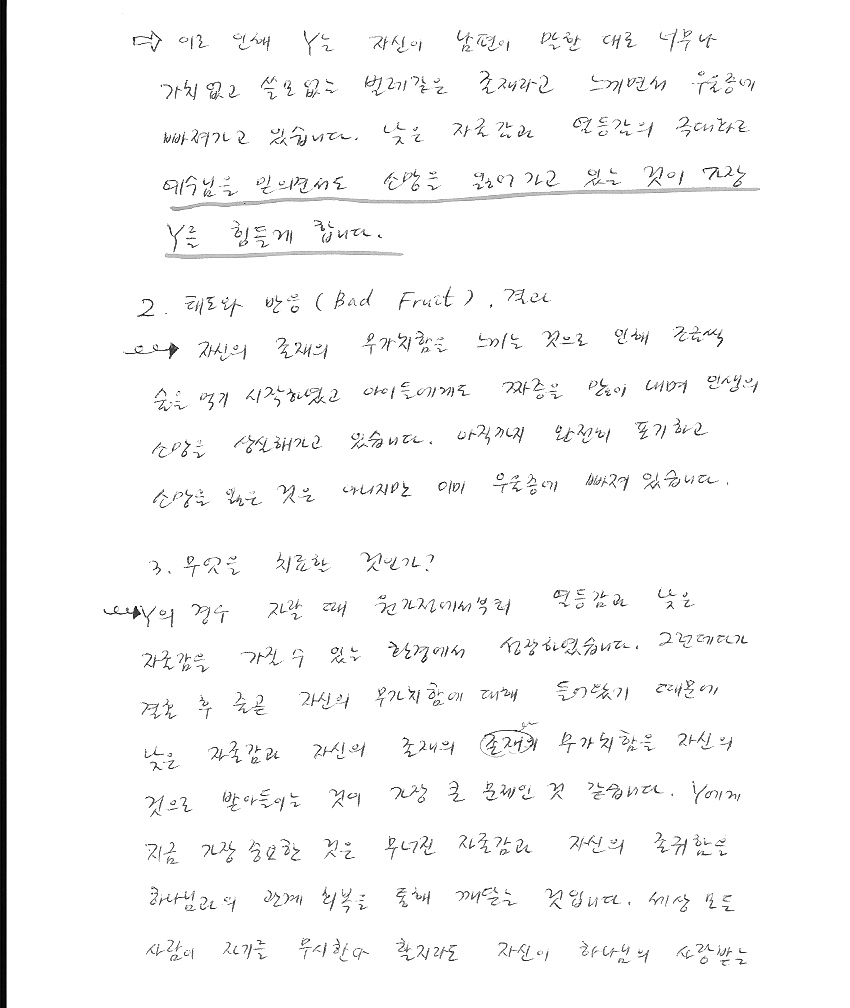 ⇨ 이로 인해 Y는 자신이 남편이 말한 대로 너무나
가치 없고 쓸모없는 벌레같은 존재라고 느끼면서 우울증에
빠져가고 있습니다. 낮은 자존감과 열등감의 극대화로
예수님을 믿으면서도 소망을 잃어 가고 있는 것이 가장
Y를 힘들게 합니다.
2. 태도와 반응 (Bad Fruit), 결과
자신의 존재의 무가치함을 느끼는 것으로 인해 조금씩
술을 먹기 시작하였고 아이들에게도 짜증을 많이 내며 인생의
소망을 상실해가고 있습니다. 아직까지 완전히 포기하고
소망을 잃은 것은 아니지만 이미 우울증에 빠져 있습니다.
3. 무엇을 치료할 것인가?
Y의 경우 자랄 때 원가정에서부터 열등감과 낮은
자존감을 가질 수 있는 환경에서 성장하였습니다. 그런데다가
결혼 후 줄곧 자신의 무가치함에 대해 들어왔기 때문에
낮은 자존감과 자신의 존재의 존재의 무가치함을 자신의
것으로 받아들이는 것이 가장 큰 문제인 것 같습니다. Y에게
지금 가장 중요한 것은 무너진 자존감과 자신의 존귀함을
하나님과의 관계 회복을 통해 깨닫는 것입니다. 세상 모든
사람이 자기를 무시한다 할지라도 자신이 하나님의 사랑받는